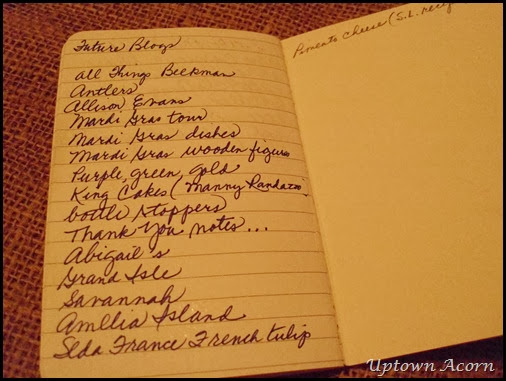 Future Blogs
all Things Beekman
Antlers
Allison Evans
Mardi Gras tour
Mardi Gras dishes
Mardi Gras wooden figures
Purple, green, gold
King Cakes (Manny Randazzo)
bottle stoppers
Thank You notes...
Abigail's
Grand Isle
Savannah
Amelia Island
Seda France French tulip
Pimento Cheese (S.L. recip
Uptown Acorn